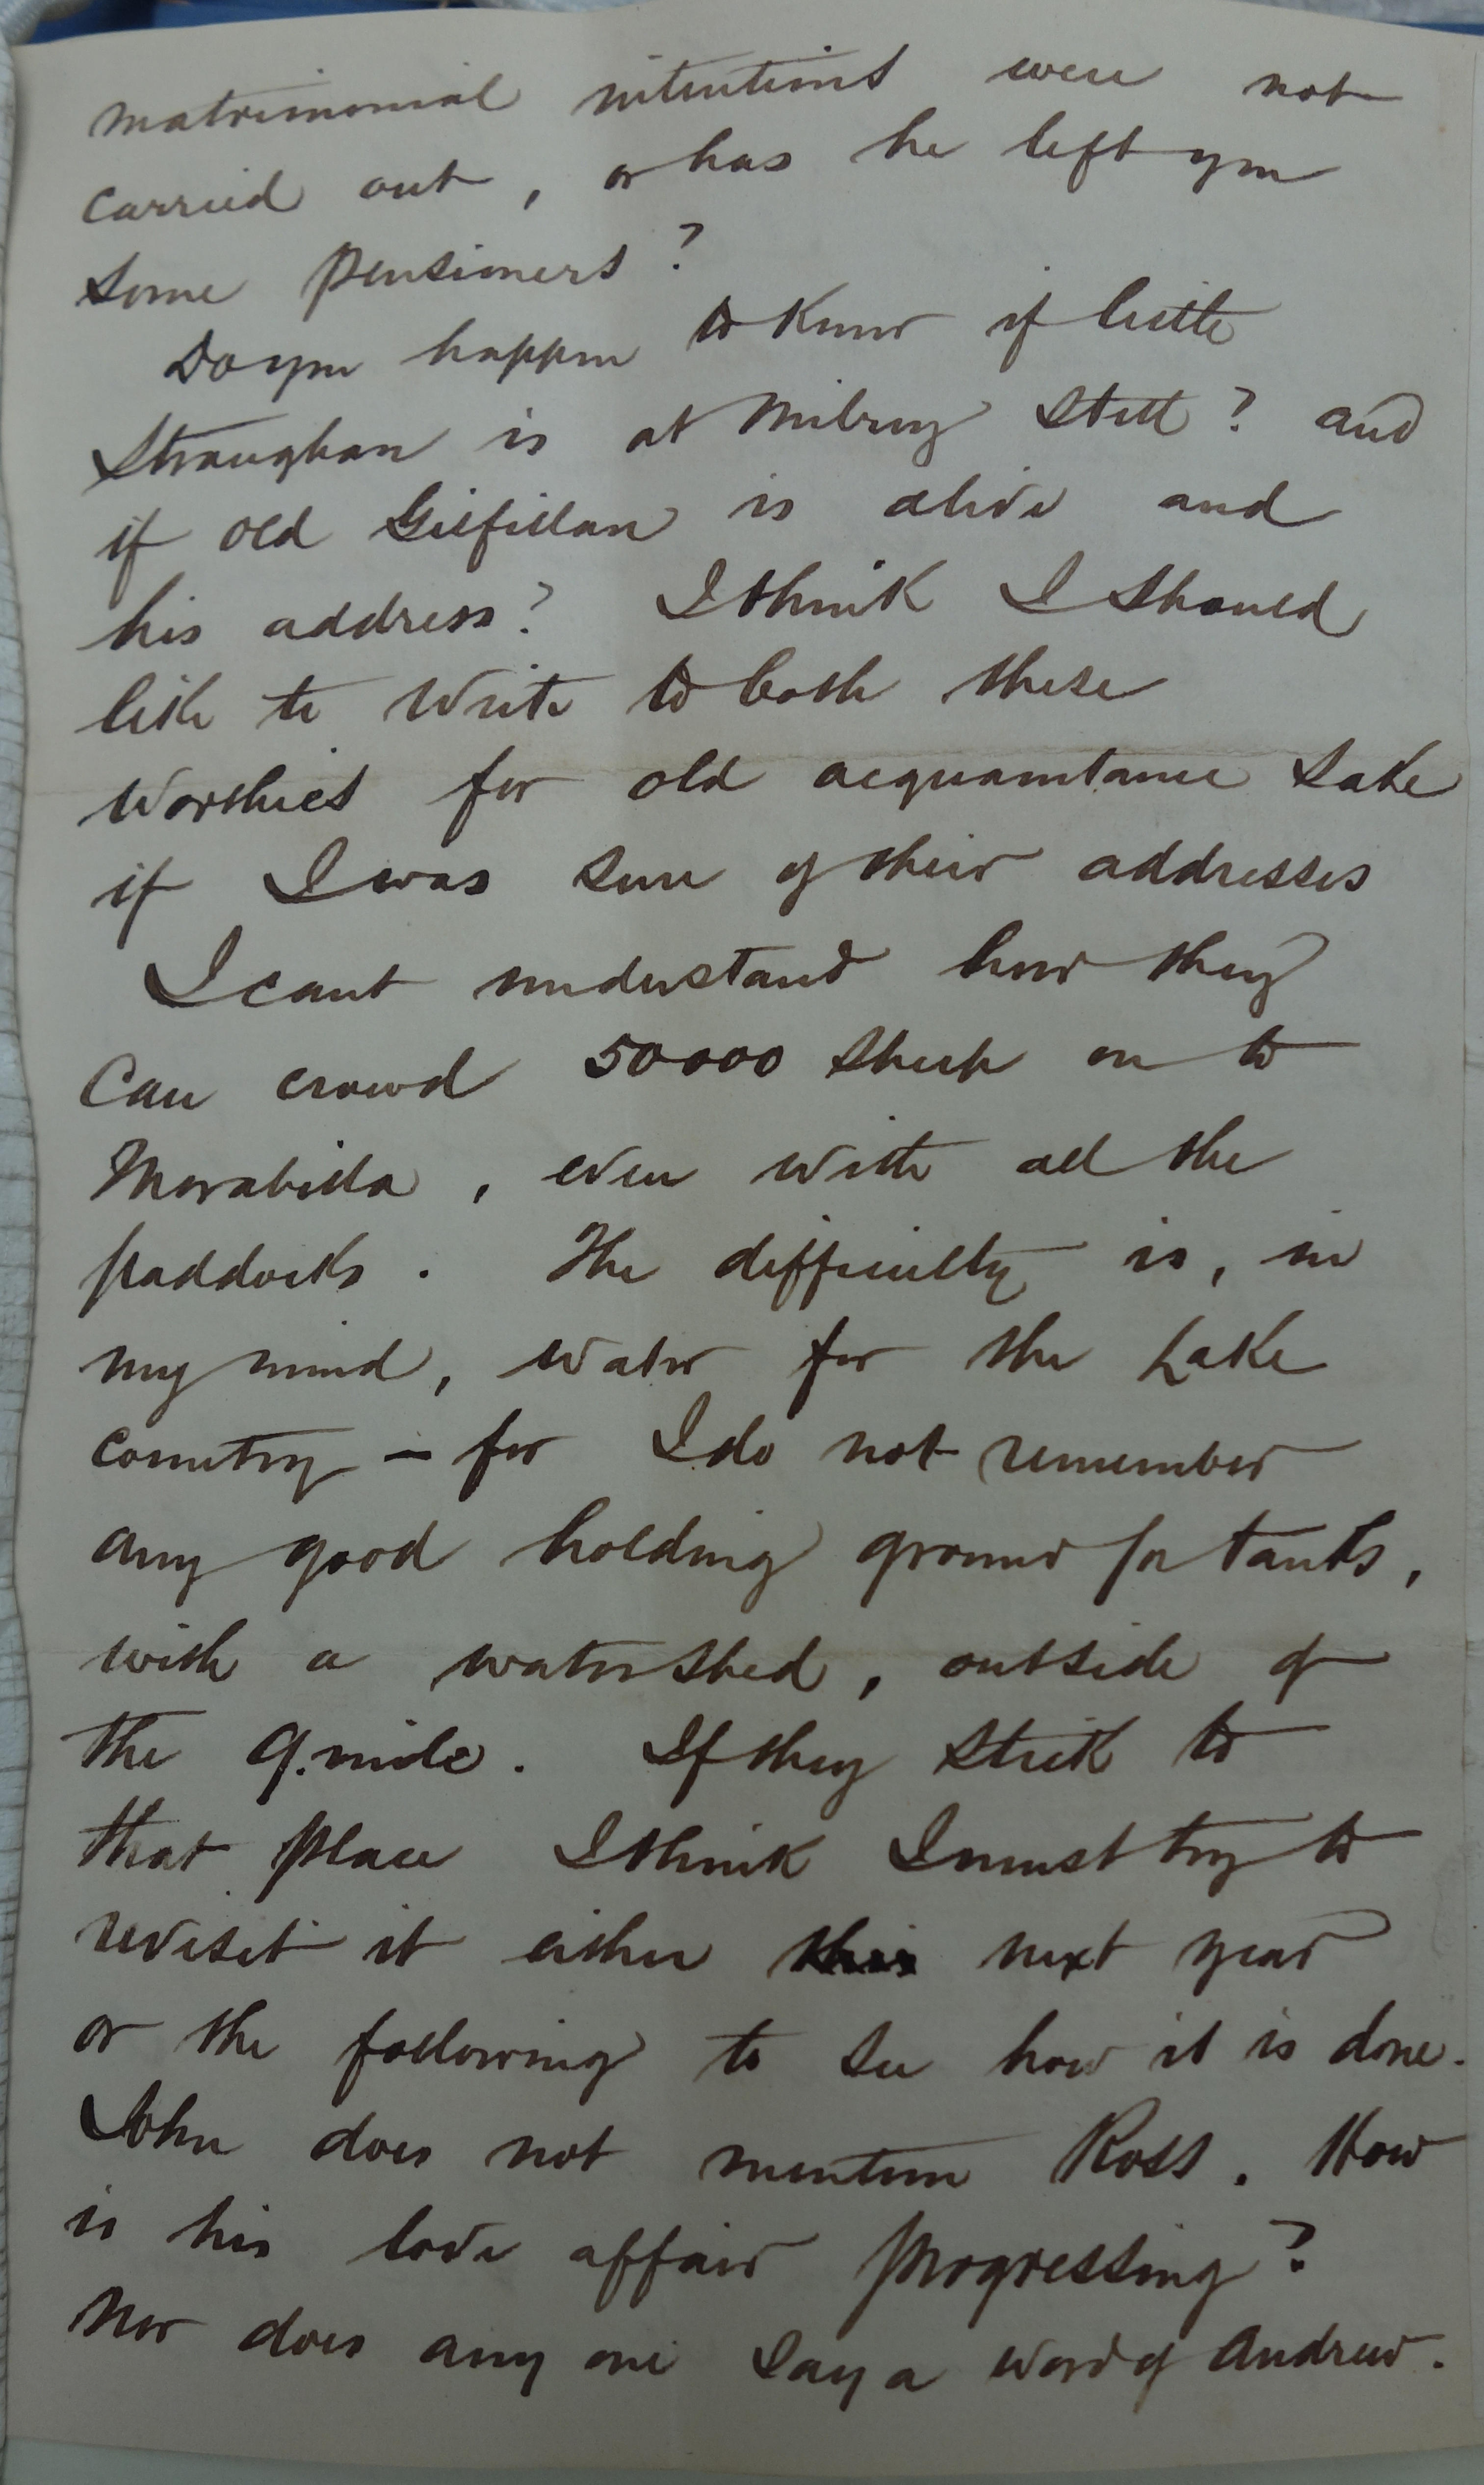 matrimonial intentions were not
carried out, or has he left you
some pensioners?
Do you happen to know if little
Straughan is at Milruy still? and
if old Gilfillan is alive and
his address? I think I should
like to write to both these
worthies for old acquaintance sake
if I was sure of their addresses
I cant understand how they
can crowd 50000 sheep on to
Morabilla, even with all the
paddocks. The difficulty is, in
my mind, water for the Lake
country – for I do not remember
any good holding ground for tanks,
with a watershed, outside of
the 9.mile. If they stick to
that place I think I must try to
revisit it either this next year
or the following to see how it is done.
John does not mention Ross. How
is his love affair progressing?
Nor does any one say a word of Andrew.